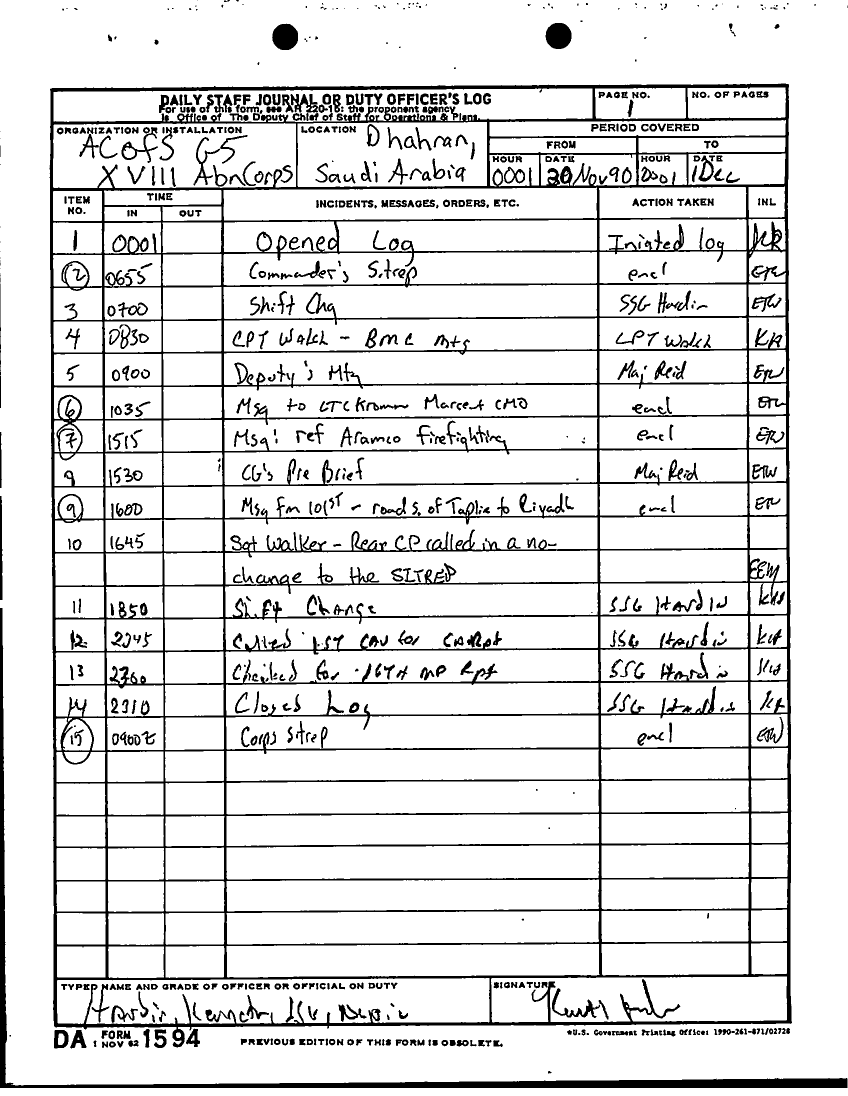 DAILY STAFF JOURNAL OR DUTY OFFICER'S LOG
For use of this form, see AR 220-15; the proponent agency
is Office of The Deputy Chief of Staff for Operations & Plans.
PAGE NO.
1
NO. OF PAGES
ORGANIZATION OR INSTALLATION
ACofS G-5
XVIII AbnCorps
LOCATION
Dhahran,
Saudi Arabia
PERIOD COVERED
FROM
TO
HOUR DATE HOUR DATE
0001 30 Nov 90 0001 1 Dec
ITEM NO.
TIME
IN OUT
INCIDENTS, MESSAGES, ORDERS, ETC.
ACTION TAKEN
INL
1 0001 Opened Log Iniated log
2 0655 Commander's Sitrep encl ETW
3 0700 Shift Chg SSG Hardin ETW
4 0830 CPT Walch - BMC mtg CPT Walch KH
5 0900 Deputy's Mtg Maj Reid ETW
6 1035 Msg to LTC Kromm Marcent CMO encl ETW
7 1515 Msg: ref Aramco firefighting encl ETW
8 1530 CG's Pre Brief Maj Reid ETW
9 1600 Msg fm 101ST - road S. of Tapline to Riyadh encl ETW
10 1645 Sgt Walker - Rear CP called in a no-
change to the SITREP EEM
11 1850 Shift Change SSG Hardin KH
12 2245 Called 1ST CAV for SSG Hardin KH
13 2300 Checked for 16TH MP Rpt SSG Hardin KH
14 2310 Closed Log SSG Hardin KH
15 0900Z Corps Sitrep encl ETW
TYPED NAME AND GRADE OF OFFICER OR OFFICIAL ON DUTY
Hardin, Kenneth,
SIGNATURE
DA FORM 1 NOV 62 1594
PREVIOUS EDITION OF THIS FORM IS OBSOLETE.
*U.S. Government Printing Office: 1990-261-871/02728